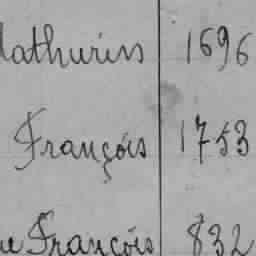 Mathurins 1696
François 1753
ue François 832